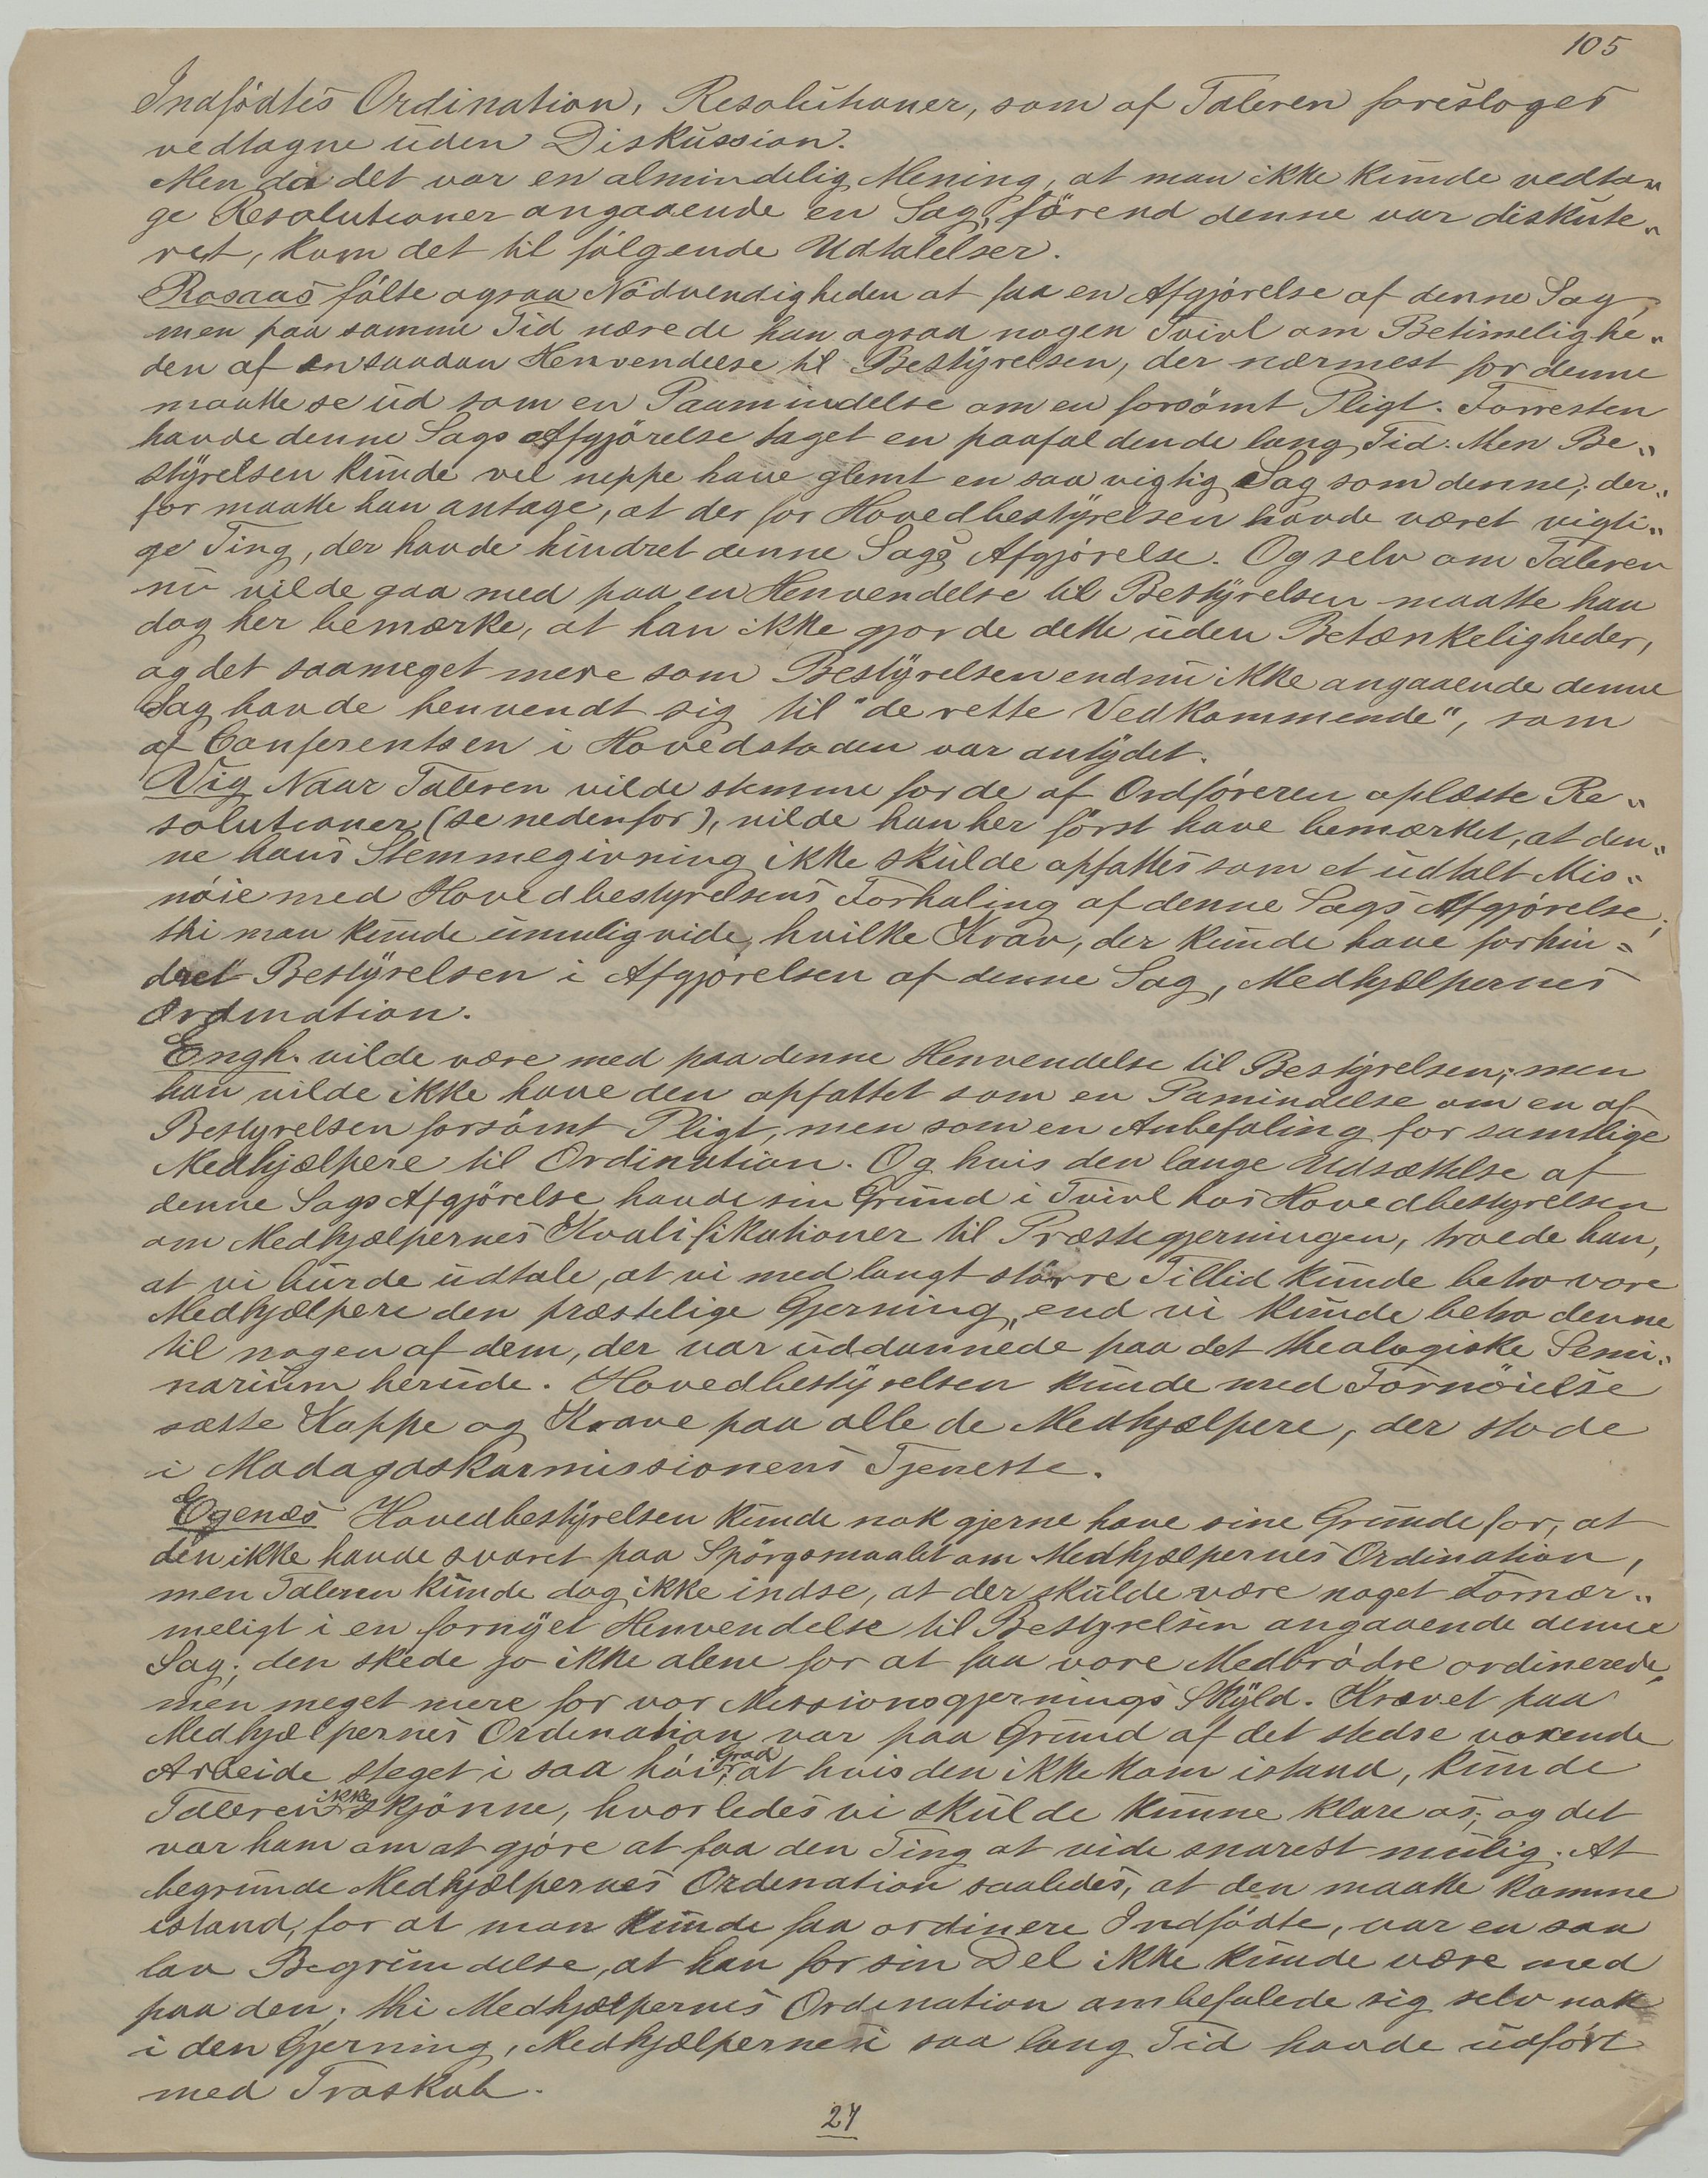 105
Indfödtes Ordination, Resolutioner, som af Taleren foresloges
vedtagne uden Diskussion.
Men da det var en almindelig Mening, at man ikke kunde vedta„
ge Resolutioner angaaende en Sag, förend denne var diskute„
ret, kom det til fölgende Udtalelser.
Rosaas fölte ogsaa Nödvendigheden at faa en Afgjörelse af denne Sag,
men paa samme Tid nærede han ogsaa nogen Tvivl om Betimelighe„
den af en saadan Henvendelse til Bestyrelsen, der nærmest for denne
maatte se ud som en Paamindelse om en forsömt Pligt. Forresten
havde denne Sags Afgjörelse taget en paafaldende lang Tid. Men Be„
styrelsen kunde vel neppe have glemt en saa vigtig Sag som denne; der„
for maatte han antage, at der for Hovedbestyrelsen havde været vigti„
ge Ting, der havde hindret denne Sags Afgjörelse. Og selv om Taleren
nu vilde gaa med paa en Henvendelse til Bestyrelsen maatte han
dog her bemærke, at han ikke gjorde dette uden Betænkeligheder,
og det saameget mere som Bestyrelsen endnu ikke angaaende denne
Sag havde henvendt sig til "de rette Vedkommende", som
af Conferentsen i Hovedstaden var antydet.
Vig Naar Taleren vilde stemme for de af Ordföreren oplæste Re„
solutioner (se nedenfor), vilde han her först have bemærket, at den„
ne hans Stemmegivning ikke skulde opfattes som et udtalt Mis„
nöie med Hovedbestyrelsens Forhaling af denne Sags Afgjörelse;
thi man kunde umulig vide, hvilke Krav, der kunde have forhin„
dret Bestyrelsen i Afgjörelsen af denne Sag, Medhjælpernes
Ordination.
Engh. vilde være med paa denne Henvendelse til Bestyrelsen; men
han vilde ikke have den opfattet som en Pamindelse om en af
Bestyrelsen forsömt Pligt, men som en Anbefaling for samtlige
Medhjælpere til Ordination. Og hvis den lange Udsættelse af
denne Sags Afgjörelse havde sin Grund i Tvivl hos Hovedbestyrelsen
om Medhjælpernes Kvalifikationer til Præstegjerningen, troede han,
at vi burde udtale, at vi med langt större Tillid kunde betro vore
Medhjælpere den præstelige Gjerning, end vi kunde betro denne
til nogen af dem, der var uddannede paa det theologiske Semi„
narium herude. Hovedbestyrelsen kunde med Fornöielse
sætte Kappe og Krave paa alle de Medhjælpere, der stode
i Madagaskarmissionens Tjeneste.
Egenæs Hovedbestyrelsen kunde nok gjerne have sine Grunde for, at
den ikke havde svaret paa Spörgsmaalet om Medhjælpernes Ordination,
men Taleren kunde dog ikke indse, at der skulde være noget Fornær„
meligt i en fornyet Henvendelse til Bestyrelsen angaaende denne
Sag; den skede jo ikke alene for at faa vore Medbrödre ordinerede,
men meget mere for vor Missionsgjernings Skyld. Kravet paa
Medhjælpernes Ordination var paa Grund af det stedse voxende
Arbeide steget i saa höi Grad, at hvis den ikke kom istand, kunde
Taleren ikke skjönne, hvorledes vi skulde kunne klare os; og det
var ham om at gjöre at faa den Ting at vide snarest mulig. At
begrunde Medhjælpernes Ordination saaledes, at den maatte komme
istand, for at man kunde faa ordinere Indfödte, var en saa
lav Begrundelse, at han for sin Del ikke kunde være med
paa den; thi Medhjælpernes Ordination ambefalede sig selv nok
i den Gjerning, Medhjælperne i saa lang Tid havde udfört
med Troskab.
27